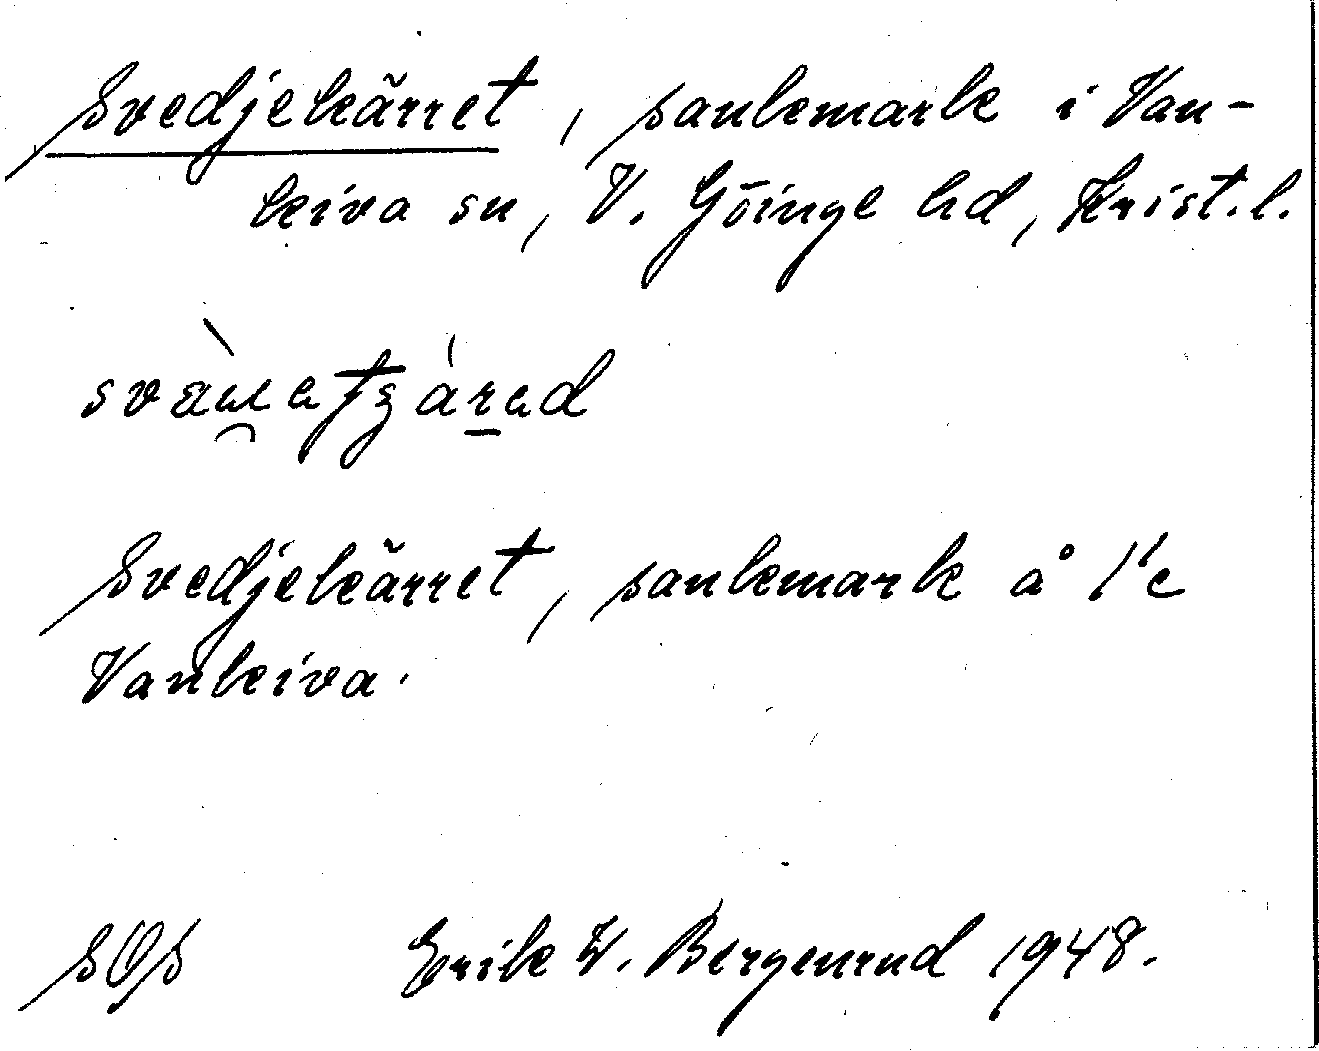 Svedjekärret, sankmark i Van-
keiva sn, V. Göinge hd, Krist. l.
Svedjekärret, sankmark å 1'e
Vankeiva.
SOS Erik W. Bergenrud 1948.